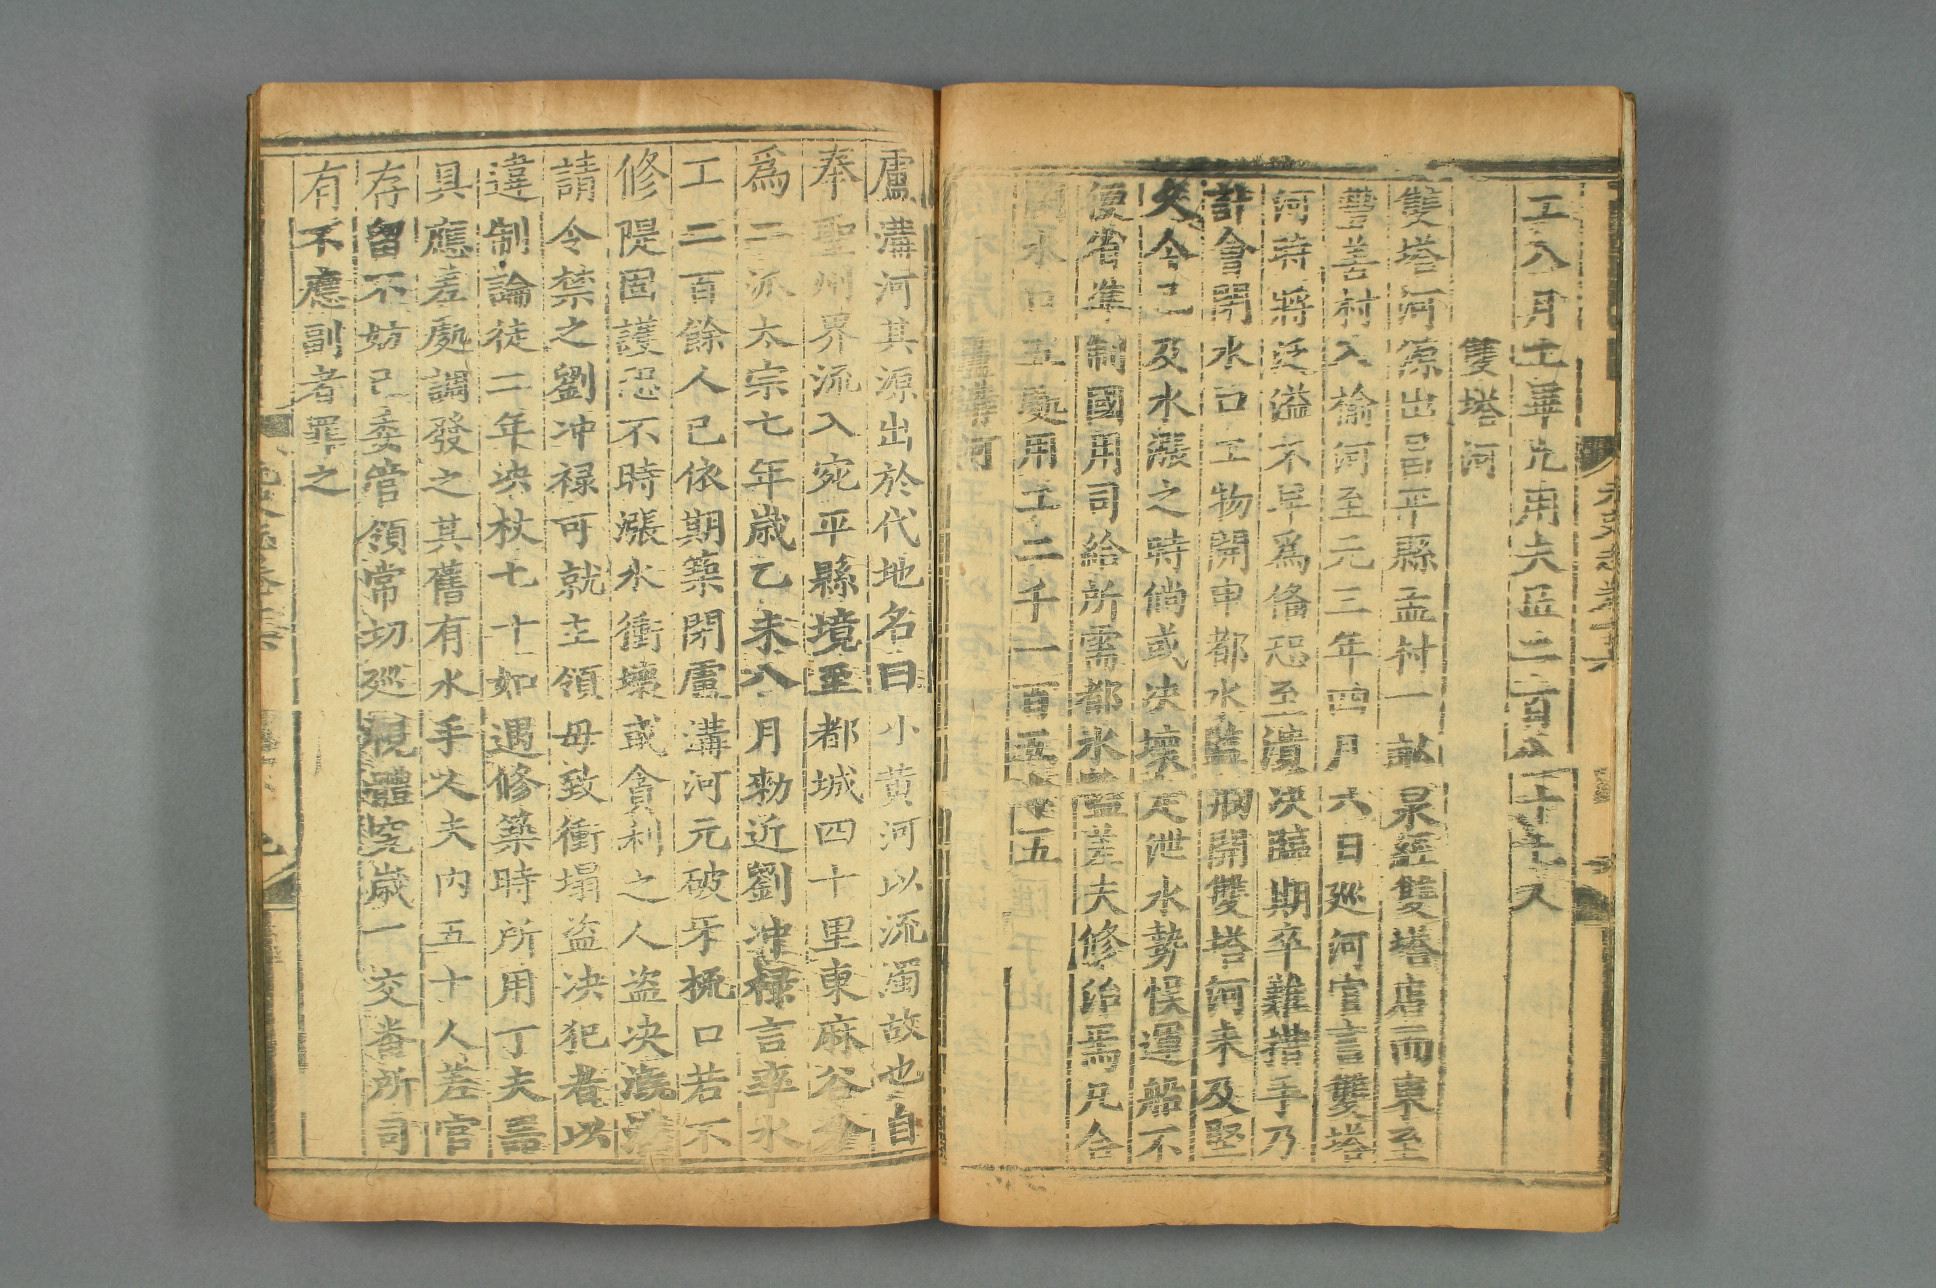 工八月工畢凡用夫匠二百八十七人
雙塔河
雙塔河源出昌平縣孟村一畝泉經雙塔店而東至
豐善村入榆河至元三年四月六日巡河官言雙塔
河時將泛溢不早爲備恐至潰決臨期卒難措手乃
計會閉水口工物開申都水監刱開雙塔河未及堅
久今已及水漲之時倘或決壞走泄水勢悞運船不
便省準制國用司給所需都水監差夫修治焉凡合
閉水口五處用工二千一百五十五
盧溝河
盧溝河其源出於代地名曰小黃河以流濁故也自
奉聖州界流入宛平縣境至都城四十里東麻谷分
爲二派太宗七年歲乙未八月勑近劉冲祿言率水
工二百餘人已依期築閉盧溝河元破牙梳口若不
修隄固護恐不時漲水衝壞或貪利之人盜決溉灌
請令禁之劉冲祿可就主領毋致衝塌盜決犯者以
違制論徒二年決杖七十如遇修築時所用丁夫器
具應差處調發之其舊有水手人夫內五十人差官
存留不妨已委管領常切巡視體究歲一交番所司
有不應副者罪之